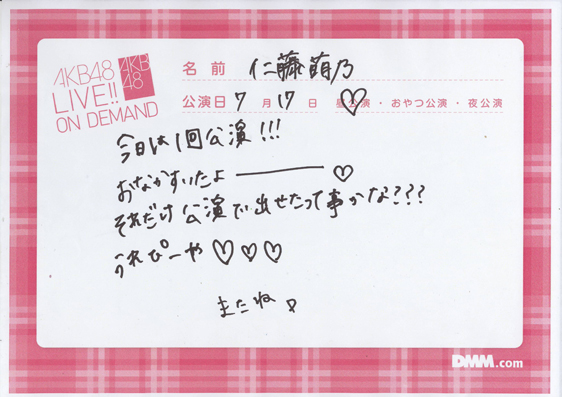 AKB48
LIVE!!
ON DEMAND
AKB
48
名前 仁藤萌乃
公演日 7月17日 昼公演・おやつ公演・夜公演
今日は1回公演!!!
おなかすいたよ――♡
それだけ公演で出せたって事かな???
うれぴーや♡♡♡
またね
DMM.com